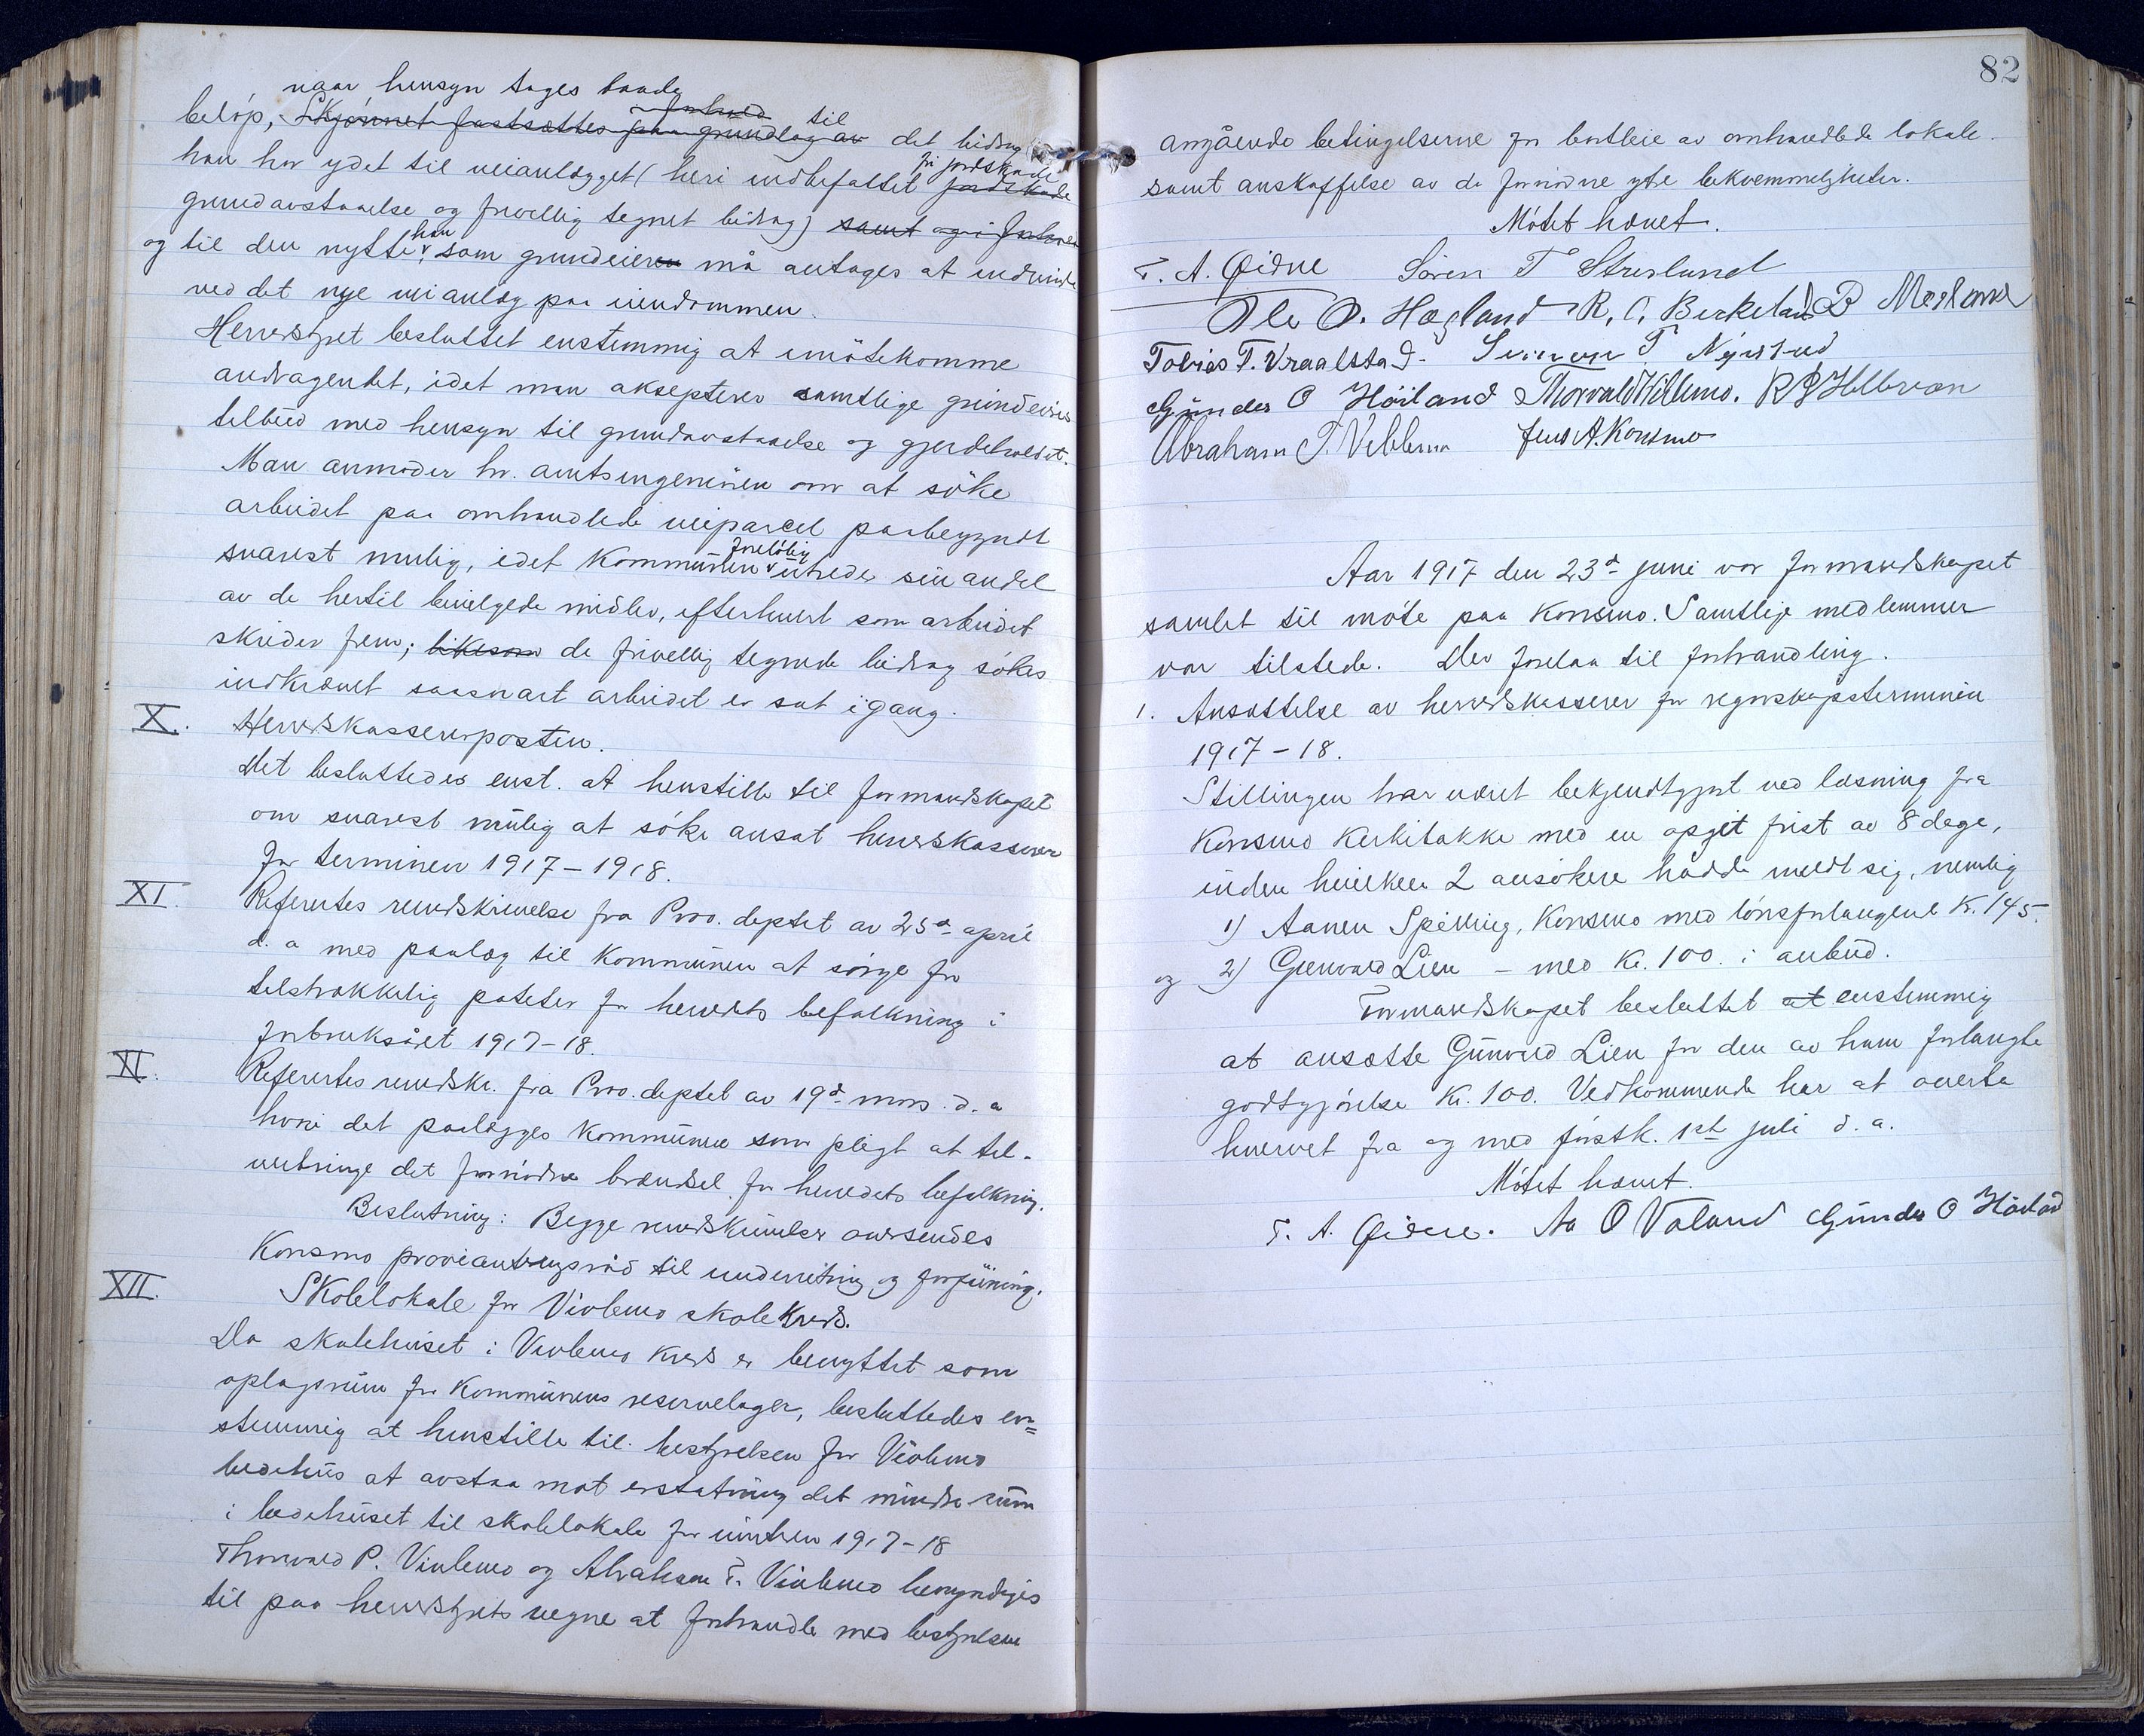 naar hensyn tages baade
beløp, Skjønnet fastsættes i forhold paa grundlag av til det bidrag
han har ydet til veianlægget (heri indbefattet for jordskade jordskade
grundavstaaelse og frivillig tegnet bidrag) samt og i forhold
og til den nytte, han som grundeieren må antages at indvinde
ved det nye veianlæg paa eiendommen.
Herredstyret besluttet enstemmig at imøtekomme
andragendet, idet man aksepterer samtlige grundeieres
tilbud med hensyn til grundavstaaelse og gjerdehold.
Man anmoder hr. amtsingeniøren om at søke
arbeidet paa omhandlede veiparcel paabegyndt
snarest mulig, idet kommunen foreløbig utreder sin andel
av de hertil bevilgede midler, efterhvert som arbeidet
skrider frem; likesom de frivillig tegnede bidrag søkes
indkrævet saasnart arbeidet er sat igang.
X. Herredskassererposten.
Det besluttedes enst. at henstille til formandskapet
om snarest mulig at søke ansat herredskasserer
for terminen 1917-1918.
XI. Referertes rundskrivelse fra Prov. deptet av 25de april
d. a med paalæg til kommunen at sørge for
tilstrækkelig poteter for herredets befolkning i
forbruksåret 1917-18.
XI. Referertes rundskr. fra Prov. deptet av 19de mrs. d. a
hvori det paalægges kommunen som pligt at til-
veiebringe det fornødne brændsel for herredets befolkning.
Beslutning: Begge rundskrivelser oversendes
Konsmo provianteringsråd til underretning og forføining.
XII. Skolelokale for Viblemo skolekreds.
Da skolehuset i Viblemo kreds er benyttet som
oplagsrum for kommunens reservelager, besluttedes en=
stemmig at henstille til bestyrelsen for Viblemo
bedehus at avstaa mot erstatning det mindre rum
i bedehuset til skolelokale for vinteren 1917-18
Thorvald P. Viblemo og Abraham T. Viblemo bemyndiges
til paa herredstyrets vegne at forhandle med bestyrelsen
82
angående betingelserne for bortleie av omhandlede lokale
samt anskaffelse av de fornødne ytre bekvemmeligheter.
Møtet hævet.
T. A. Øidne Søren T Strislund
Ole O. Hægland R. O. Birkeland B
Tobias T. Vraalstad. T
Gunder O Høiland Thorvald Viblemo.
Abraham T. Viblemo Jens A. Konsmo
Aar 1917 den 23de juni var formandskapet
samlet til møte paa Konsmo. Samtlige medlemmer
var tilstede. Der forelaa til forhandling.
1. Ansættelse av herredskasserer for regnskapsterminen
1917-18.
Stillingen har været bekjendtgjort ved læsning fra
Konsmo kirkebakke med en opgit frist av 8 dage,
inden hvilken 2 ansøkere hadde meldt sig, nemlig
1) Aanen Spilling, Konsmo med lønsforlangende kr. 145.
og 2) Gunvald Lien – med kr. 100. i anbud.
Formandskapet besluttet at enstemmig
at ansætte Gunvald Lien for den av ham forlangte
godtgjørelse kr. 100. Vedkommende har at overta
hvervet fra og med førstk. 1st juli d. a.
Møtet hævet.
T. A. Øidne. Aa O Valand Gunder O Høiland